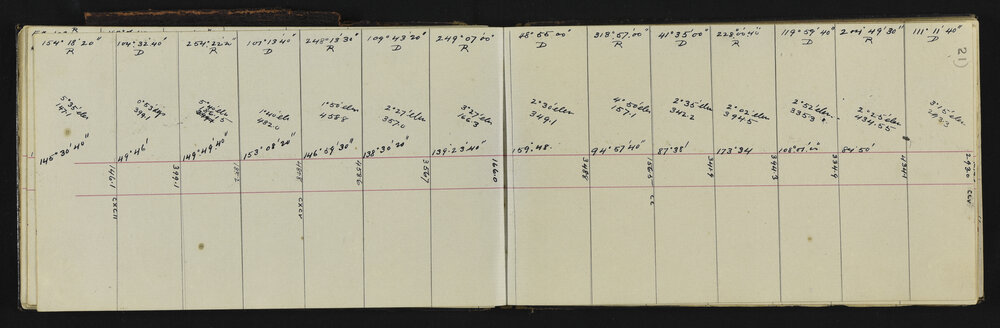 154° 18' 20" R
104° 32' 40" D
R
107° 13' 40" D
248° 13' 30" R
109° 43 20" D
249° 07 00" R
D
318° 57' 00" R
41° 35' 00" D
R
119° 59' 40" D
49' 30" R
111° 11' 40" D
21)
5° 35' elev
147.1
0° 53'
399.1
5° 40' elev
1° 40' elev
452.0
1° 50' elev
458.8
2° 27' elev
357.0
3° 27' elev
166.3
2° 30' elev
349.1
4° 50' elev
157.1
2° 35' elev
342.2
2° 02' elev
394.5
2° 52' elev
335.3
2° 25' elev
434.55
3° 15' elev
293.3
145° 30' 40"
149° 46'
149° 49' 40"
153° 08' 20"
146° 59' 30"
138° 30' 20"
139° 23' 40"
159° 48
94° 57' 40"
87° 38'
173° 34
108° 01' 00"
84° 50'
146.1
CXCII
399.1
458.8
CXCV
458.6
356.7
166.0
348.8
156.5
CC
341.9
394.3
334.9
434.1
293.0
CCV